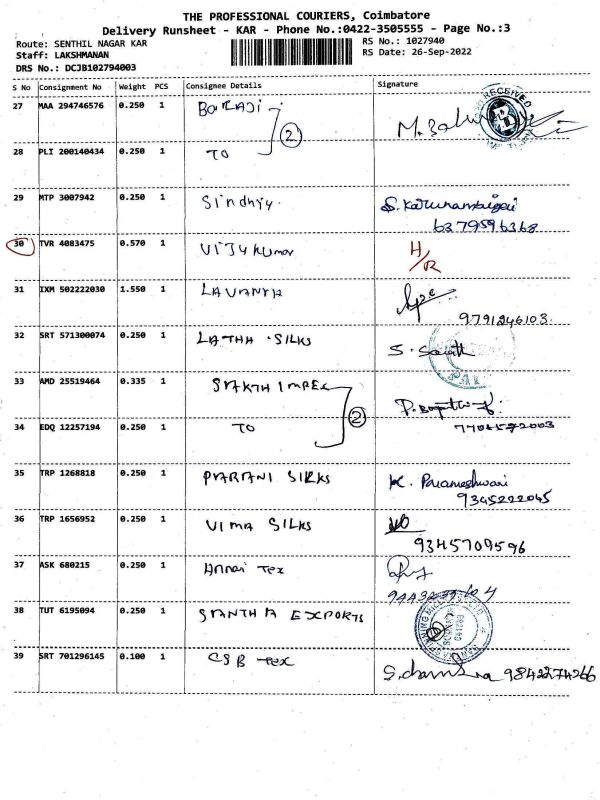 THE PROFESSIONAL COURIERS, Coimbatore
Delivery Runsheet - KAR - Phone No.:0422-3505555 - Page No.:3
Route: SENTHIL NAGAR KAR RS No.: 1027940
Staff: LAKSHMANAN RS Date: 26-Sep-2022
DRS No.: DCJB102794003
S No Consignment No Weight PCS Consignee Details Signature
27 MAA 294746576 0.250 1 BALAJI 2
28 PLI 200140434 0.250 1 TO
29 MTP 3007942 0.250 1 Sindhiy S. Karunambigai
6379596368
30 TVR 4083475 0.570 1 VIJY KUMAR H/R
31 IXM 502222030 1.550 1 LAVANYA
9791246103
32 SRT 571300074 0.250 1 LATHA SILKS
33 AMD 25519464 0.335 1 SAKTHI IMPEX 2
34 EDQ 12257194 0.250 1 TO
35 TRP 1268818 0.250 1 PARANI SILKS K. Parameshwari
9345222045
36 TRP 1656952 0.250 1 VIMA SILKS
9345709596
37 ASK 680215 0.250 1 Annai Tex
38 TUT 6195094 0.250 1 SANTHA EXPORTS
39 SRT 701296145 0.100 1 CSB Tex 9842274266